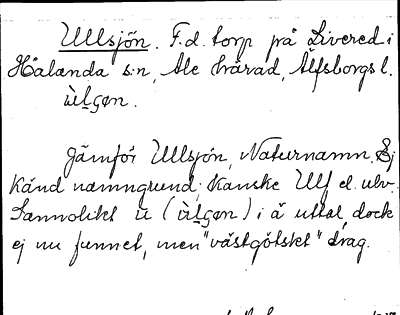 Ullsjön. F.d. torp på Livered i
Hålanda s:n, Ale härad, Älfsborgs l.
ùlʂøn.
Jämför Ullsjön, Naturnamn. Ej
känd namngrund; kanske Ulf el. ulv.
Sannolikt ù (ùlʂøn) i ä uttal, dock
ej nu funnet, men "västgötskt" drag.